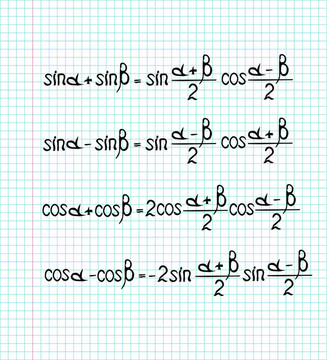 sinα + sinβ = sin (α + β)/2 cos (α - β)/2
sinα - sinβ = sin (α - β)/2 cos (α + β)/2
cosα + cosβ = 2cos (α + β)/2 cos (α - β)/2
cosα - cosβ = -2sin (α + β)/2 sin (α - β)/2